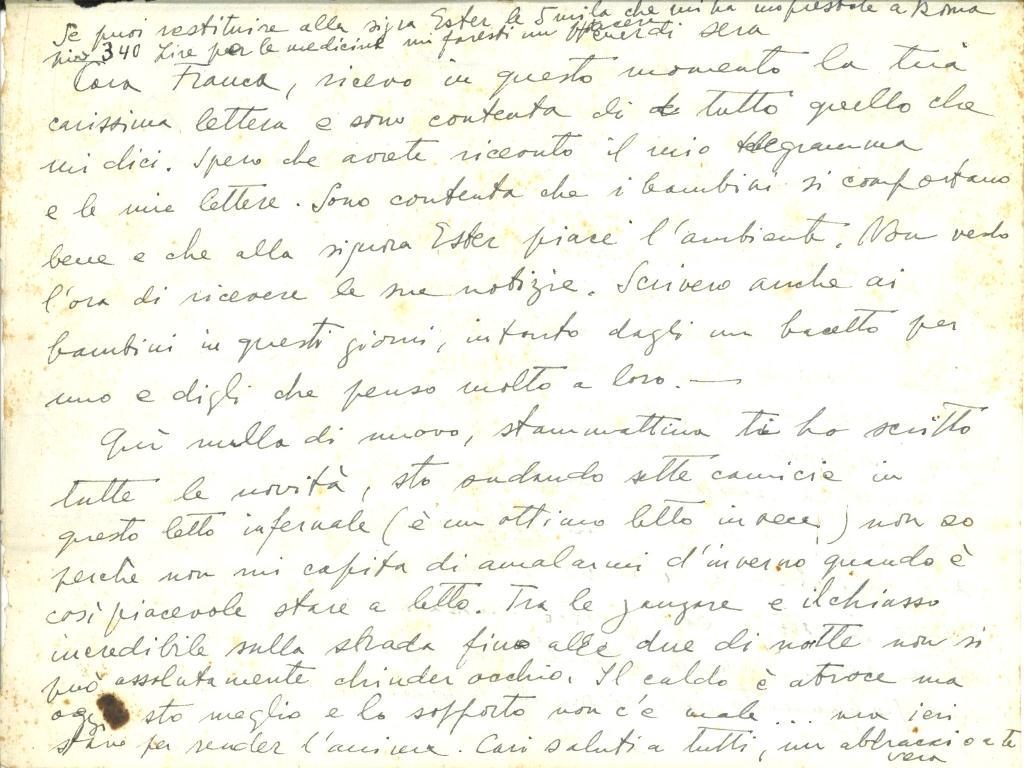 Se puoi restituire alla sigra Ester le 5 mila che mi ha imprestate a Roma
più 340 Lire per le medicine mi faresti un piacere
Venerdi sera
Cara Franca, ricevo in questo momento la tua
carissima lettera e sono contenta di tutto quello che
mi dici. Spero che avrete ricevuto il mio telegramma
e le mie lettere. Sono contenta che i bambini si comportano
bene e che alla signora Ester piace l'ambiente. Non vedo
l'ora di ricevere le sue notizie. Scriverò anche ai
bambini in questi giorni, intanto dagli un bacetto per
uno e digli che penso molto a loro. —
Qui nulla di nuovo, stammattina ti ho scritto
tutte le novità, sto sudando sette camicie in
questo letto infernale (è un ottimo letto invece) non so
perchè non mi capita di amalarmi d'inverno quando è
così piacevole stare a letto. Tra le zanzare e il chiasso
incredibile sulla strada fino alle due di notte non si
può assolutamente chiuder occhio. Il caldo è atroce ma
oggi sto meglio e lo sopporto non c'è male... ma ieri
stavo per render l'anima. Cari saluti a tutti, un abbraccio a te
Vera